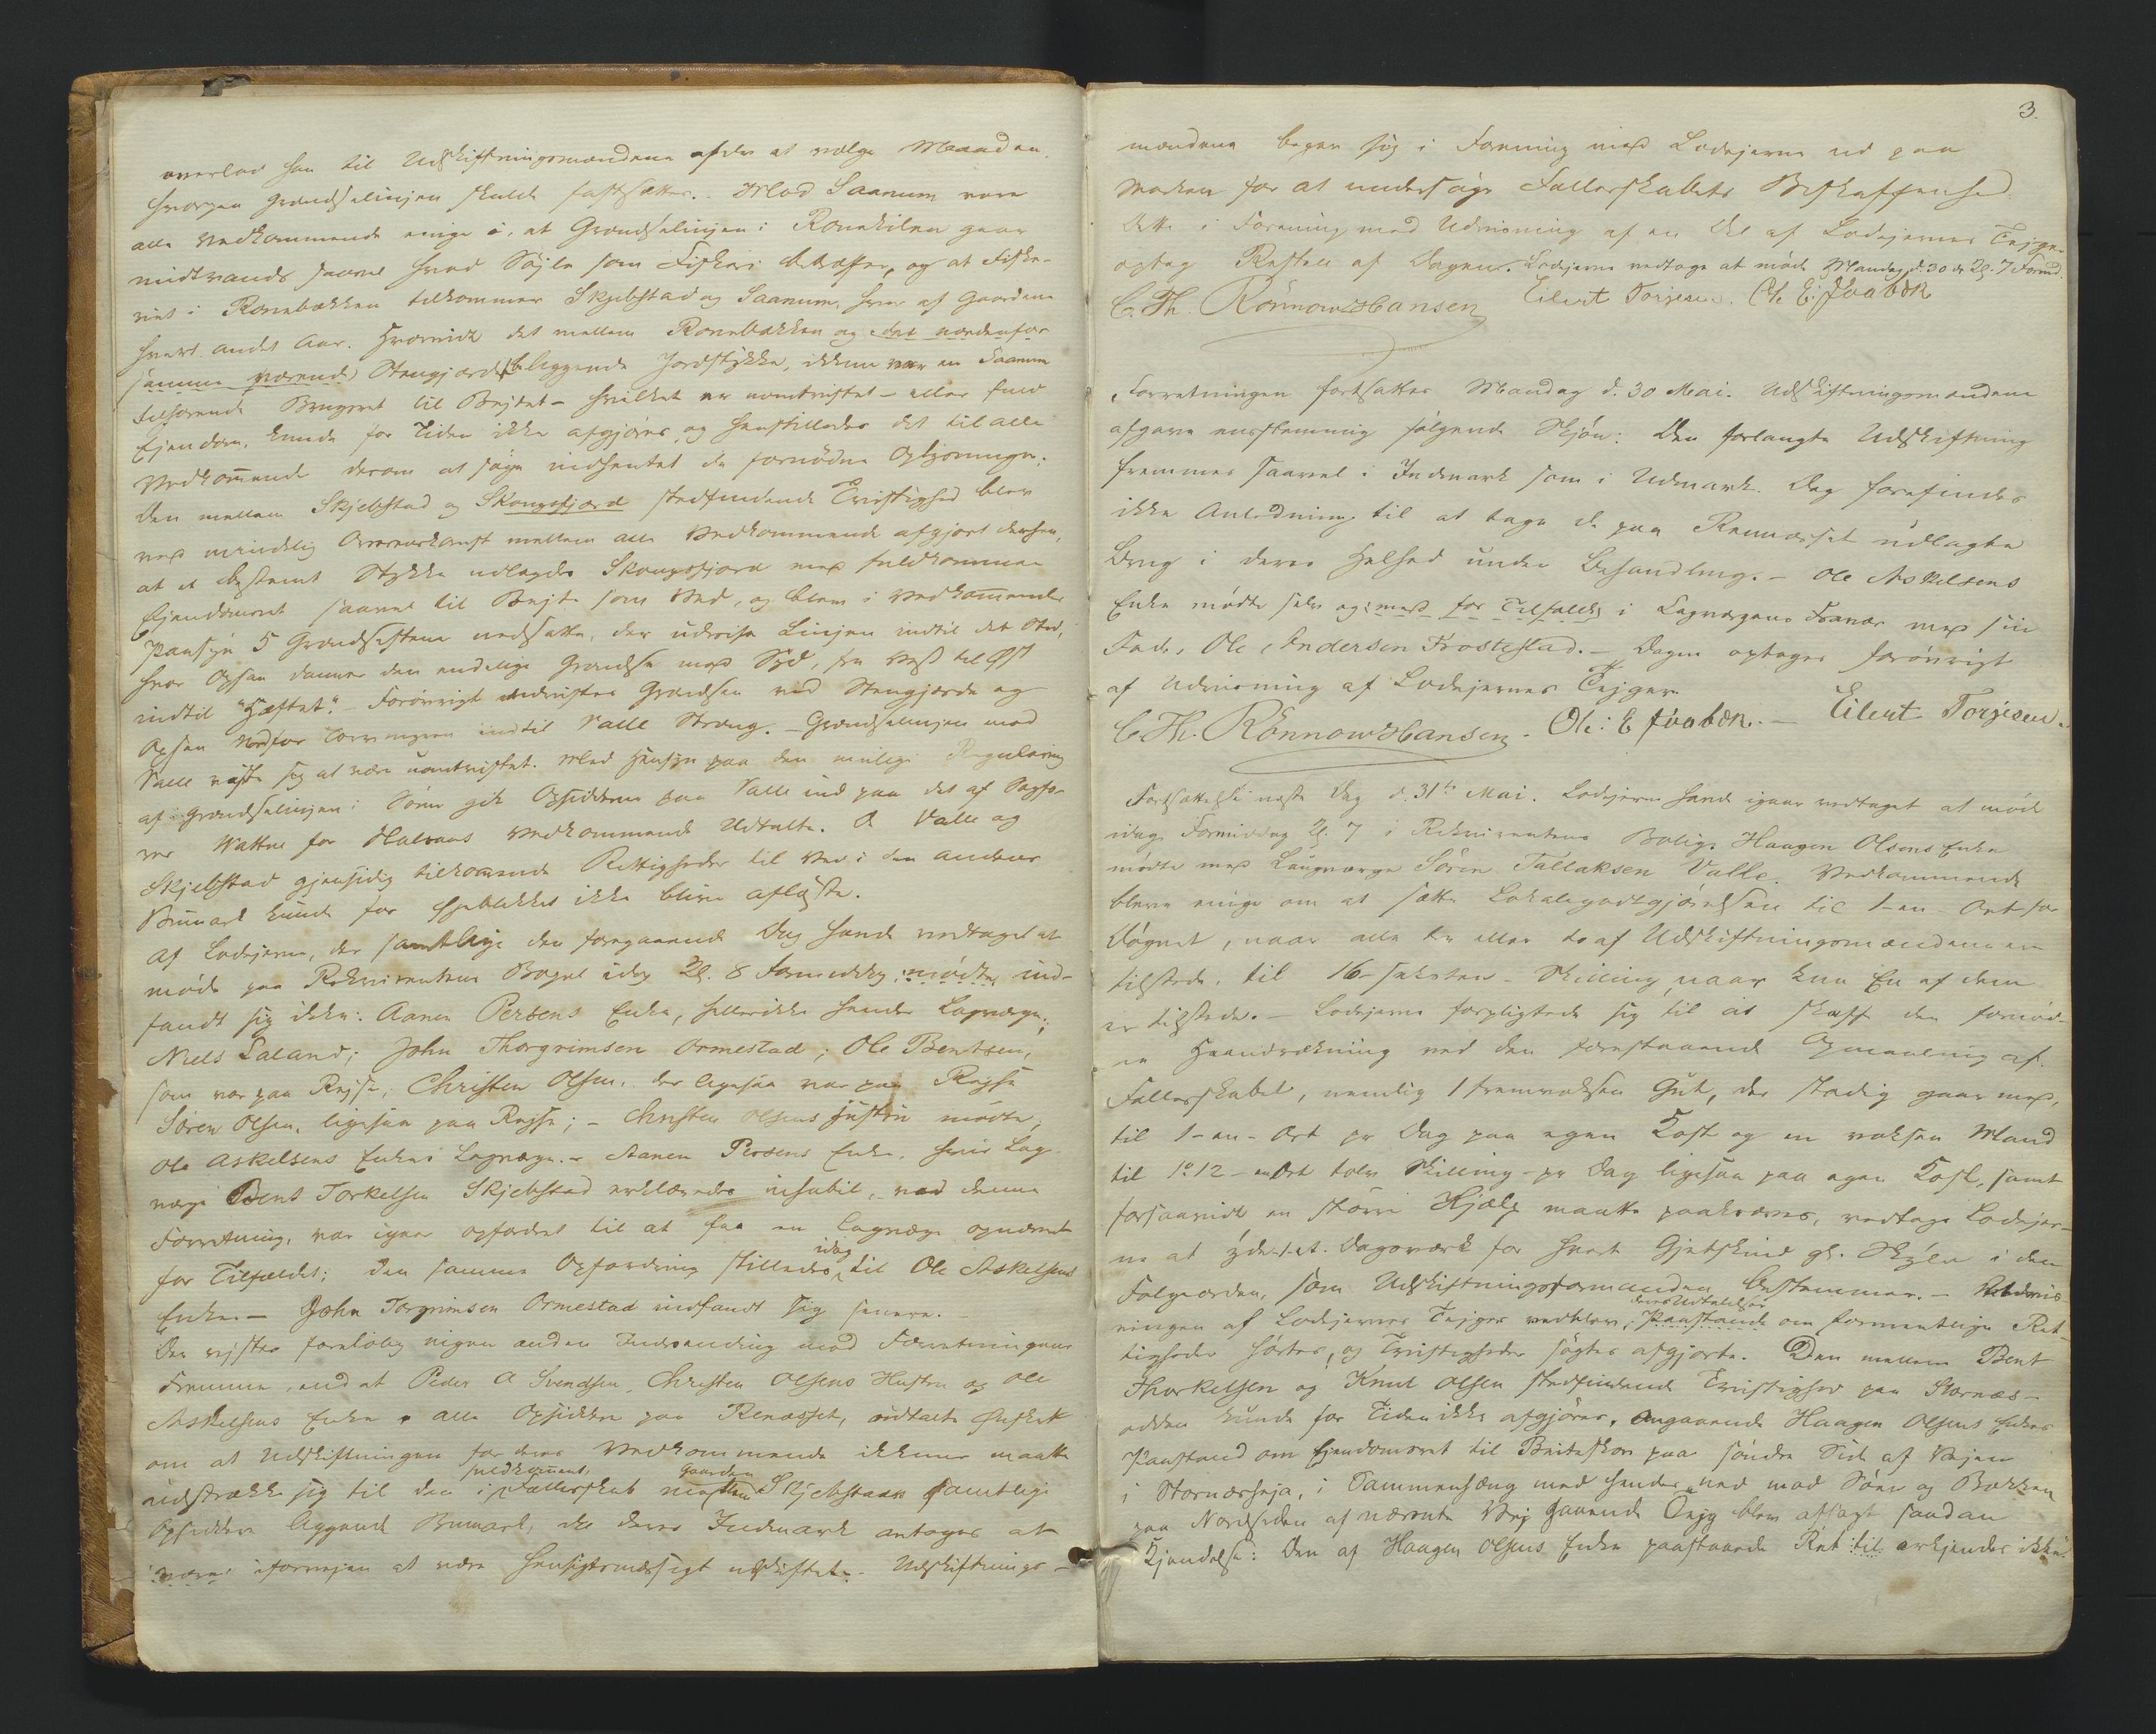 overlod han til Udskiftningsmændene afdem at vælge Maaden,
hvorpaa Grændselinjen skulde fastsættes. Mod Saanum vare
alle Vedkommende enige i, at Grændselinjen i Ronekilen gaar
midtvands saavel hvad Söjlen som Fiskeri betræffer, og at Fiske-
riet i Ronebækken tilkommer Skjebstad og Saanum, hver af Gaardene
hvert andet Aar. Hvorvidt det mellem Ronebækken og det nordenfor
samme værende Stengjærde beliggende Jordstykke, ikkun var en Saanum
tilhørende Brugsret til Bejtet - hvilket er uomtvistet - eller fuld
Ejendom, kunde for Tiden ikke afgjøres, og henstilledes det til alle
Vedkommende derom at søge indhentet de fornödne Oplysninger.
Den mellem Skjebstad og Skougsfjord stedfindende Tvistighed blev
ved mindelig Overenskomst mellem alle Vedkommende afgjort derhen,
at et bestemt Stykke udlagdes Skougsfjord med fuldkommen
Ejendomsret saavel til Bejte som Ved, og blev i Vedkommendes
Paasyn 5 Grændsestene nedsatte, der udvise Linjen indtil det Sted,
hvor Opsan danner den endelige Grændse mod Syd, fra Vest til Øst
indtil "Hæftet". Forövrigt udvistes Grændsen ved Stengjærde og
Opsan nedfor indtil Valle Stræng. - Grændselinjen mod
Valle viiste sig at være uomtvistet. Med Hensyn paa den mulige Regulering
af Grændselinjen i Söen gik Opsidderne paa Valle ind paa det af Sagfö-
rer Wattne for Halvaas Vedkommende Udtalte. De Valle og
Skjebstad gjensidig tilkommende Rettigheder til Ved i den Andens
Bumark kunde for Øjeblikket ikke blive aflöste.
Af Lodejerne, der samtlige den foregaaende Dag havde vedtaget at
möde paa Rekvirentens Bopæl idag Kl. 8 Formiddag, mödte, ind-
fandt sig ikke: Aanen Persens Enke, hellerikke hendes Lagværge;
Niels Laland; John Thorgrimsen Ormestad; Ole Bentsen,
som var paa Rejse, Christen Olsen, der ligesaa var paa Rejse
Sören Olsen, ligesaa paa Rejse; - Christen Olsens Hustru mödte,
Ole Askelsens Enkes Lagværge. - Aanen Persens Enke, hvis Lag-
værge Bent Torkelsen Skjebstad erklæredes inhabil, ved denne
Forretning, var igaar opfordret til at faa en Lagværge opnævnt
for Tilfældet; den samme Opfordring stilledes idag til Ole Askelsens
Enke. - John Torgrimsen Ormestad indfandt sig senere.
Der rejstes foreløbig ingen anden Indvending mod Forretningens
Fremme, end at Peder A Svendsen, Christen Olsens Hustru og Ole
Askelsens Enke, alle Opsiddere paa Renæsset, udtalte Ønsket
om at Udskiftningen for deres Vedkommende ikkun maatte
udstrække sig til den i fuldkoment Fællesskab mellem Gaarden Skjebstads samtlige
Opsiddere liggende Bumark, da deres Indmark antoges at
være iforvejen at være hensigtsmæssigt udskiftet. Udskiftnings-
3.
mændene begav sig i Forening med Lodejerne ud paa
Marken for at undersöge Fællesskabets Beskaffenhed.
Dette i Forening med Udvisning af en Del af Lodejernes Tejger
optog Resten af Dagen. Lodejerne vedtoge at møde Mandag d. 30 ds Kl. 7 Formd.
C. Th. Rönnow Hansen Eilert Torjesen. Ole E. Faabæk
Forretningen fortsattes Mandag d. 30 Mai. Udskiftningsmændene
afgave eenstemmig følgende Skjön: Den forlangte Udskiftning
fremmes saavel i Indmark som i Udmark. Dog forefindes
ikke Anledning til at tage de paa Renæsset udlagte
Brug i deres Helhed under Behandling. - Ole Askelsens
Enke mødte selv og med for Tilfældet i Lagværgens Fravær med sin
Fader, Ole Andersen Frøstestad. - Dagen optoges forövrigt
af Udvisning af Lodejernes Tejger.
C Th. Rönnow Hansen. Ole: E Faabæk. - Eilert Torjesen.
Fortsattes næste Dag d. 31te Mai. Lodejerne havde igaar vedtaget at möde
idag Formiddag Kl. 7 i Rekvirentens Bolig. Haagen Olsens Enke
mødte med Laugværge Sören Tallaksen Valle. Vedkommende
bleve enige om at sætte Lokalegodtgjørelsen til 1 - en - Ort for
Døgnet, naar alle tre eller to af Udskiftningsmændene ere
tilstede, til 16 - sexten - Skilling naar kun En af dem
er tilstede. - Lodejerne forpligtede sig til at skaffe den fornöd-
ne Haandrækning ved den forestaaende Opmaaling af
Fællesskabet, nemlig 1 fremvoksen Gut, der stadig gaar med,
til 1 - en - Ort pr Dag paa egen Kost og en voksen Mand
til 1 o 12 - en Ort tolv Skilling - pr Dag ligesaa paa egen Kost, samt
forsaavidt en större Hjælp maatte paakræves, vedtoge Lodejer-
ne at yde 1 - et - Dagsværk for hvert Gjetskind gl. Skyld i den
Følgeorden, som Udskiftningsformanden bestemmer. - Udvis-
ningen af Lodejernes Tejger vedblev, deres Udtalelser Paastande om formentlige Ret-
tigheder hørtes, og Tvistigheder søgtes afgjorte. Den mellem Bent
Thorkelsen og Knut Olsen stedfindende Tvistighed paa Stornæs-
odden kunde for Tiden ikke afgjøres. Angaaende Haagen Olsens Enkes
Paastand om Ejendomsret til Beiteskov paa söndre Side af Vejen
i Stornæsheja, i Sammenhæng med hendes ned mod Söen og Bækken
paa Nordsiden af nævnte Vej gaaende Tejg blev afsagt saadan
Kjendelse: Den af Haagen Olsens Enke paastaaede Ret til erkjendes ikke